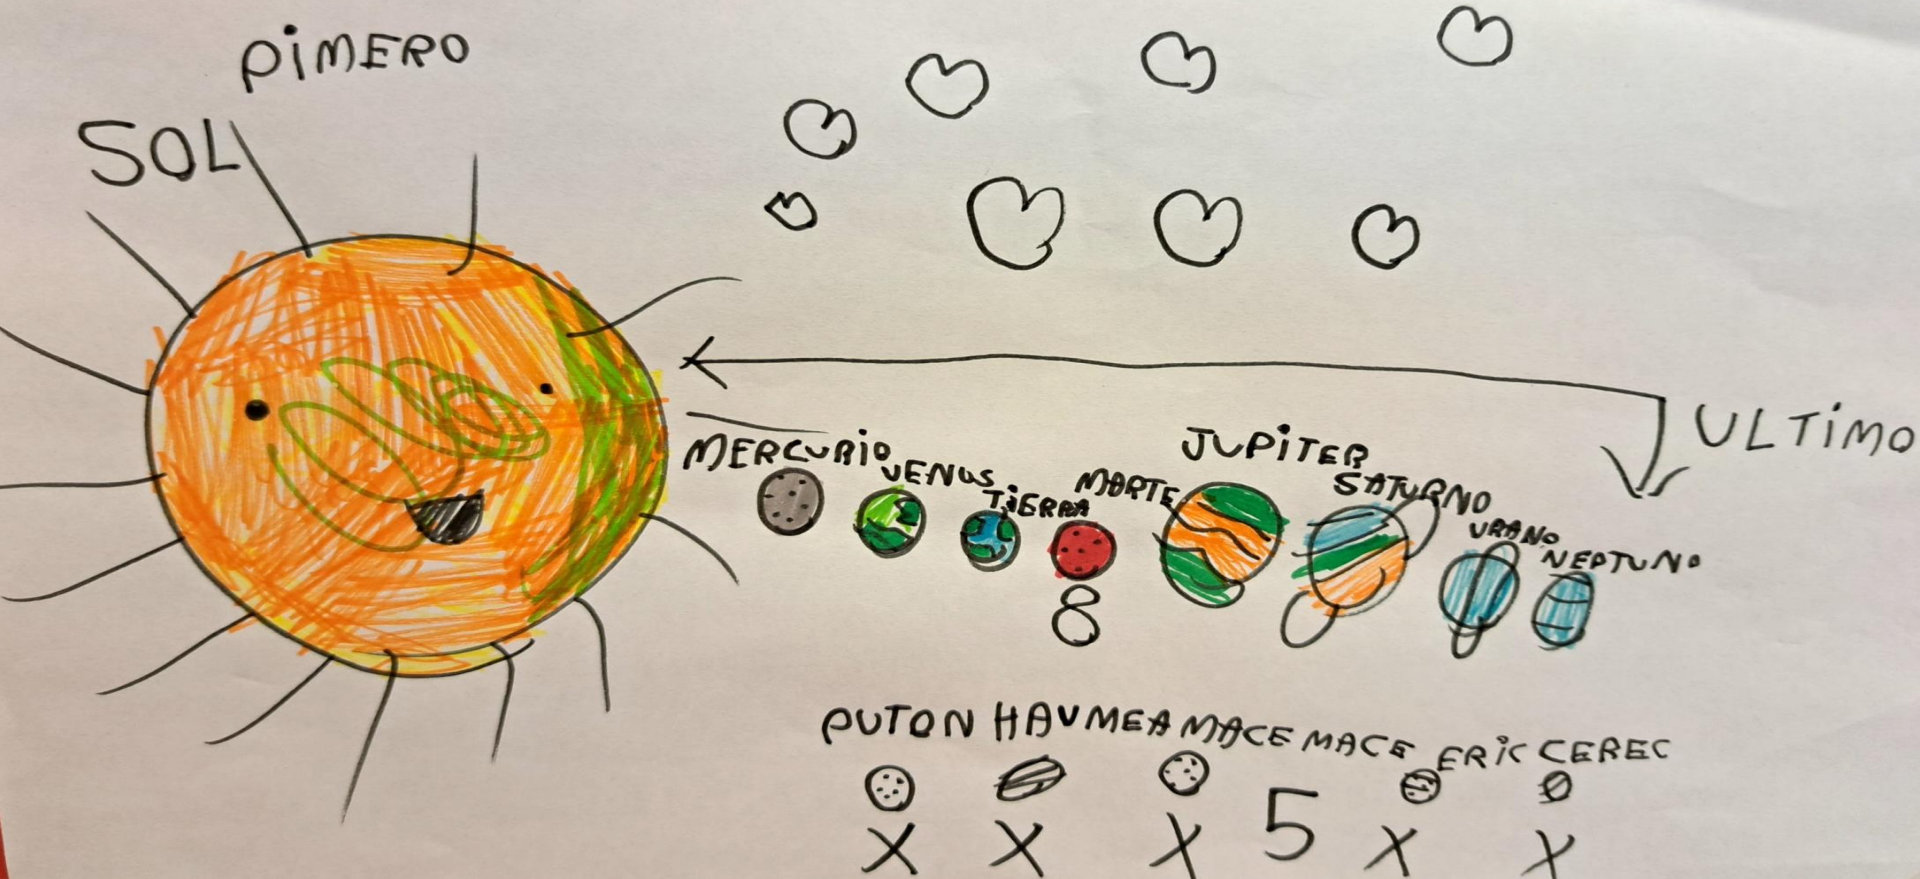 PiMERO
SOL
ULTiMO
MERCURiO
VENUS
TiERRA
MARTE
JUPiTER
SATURNO
URANO
NEPTUNO
8
PUTON HAUMEA MACE MACE ERiC CEREC
5
X X X X X